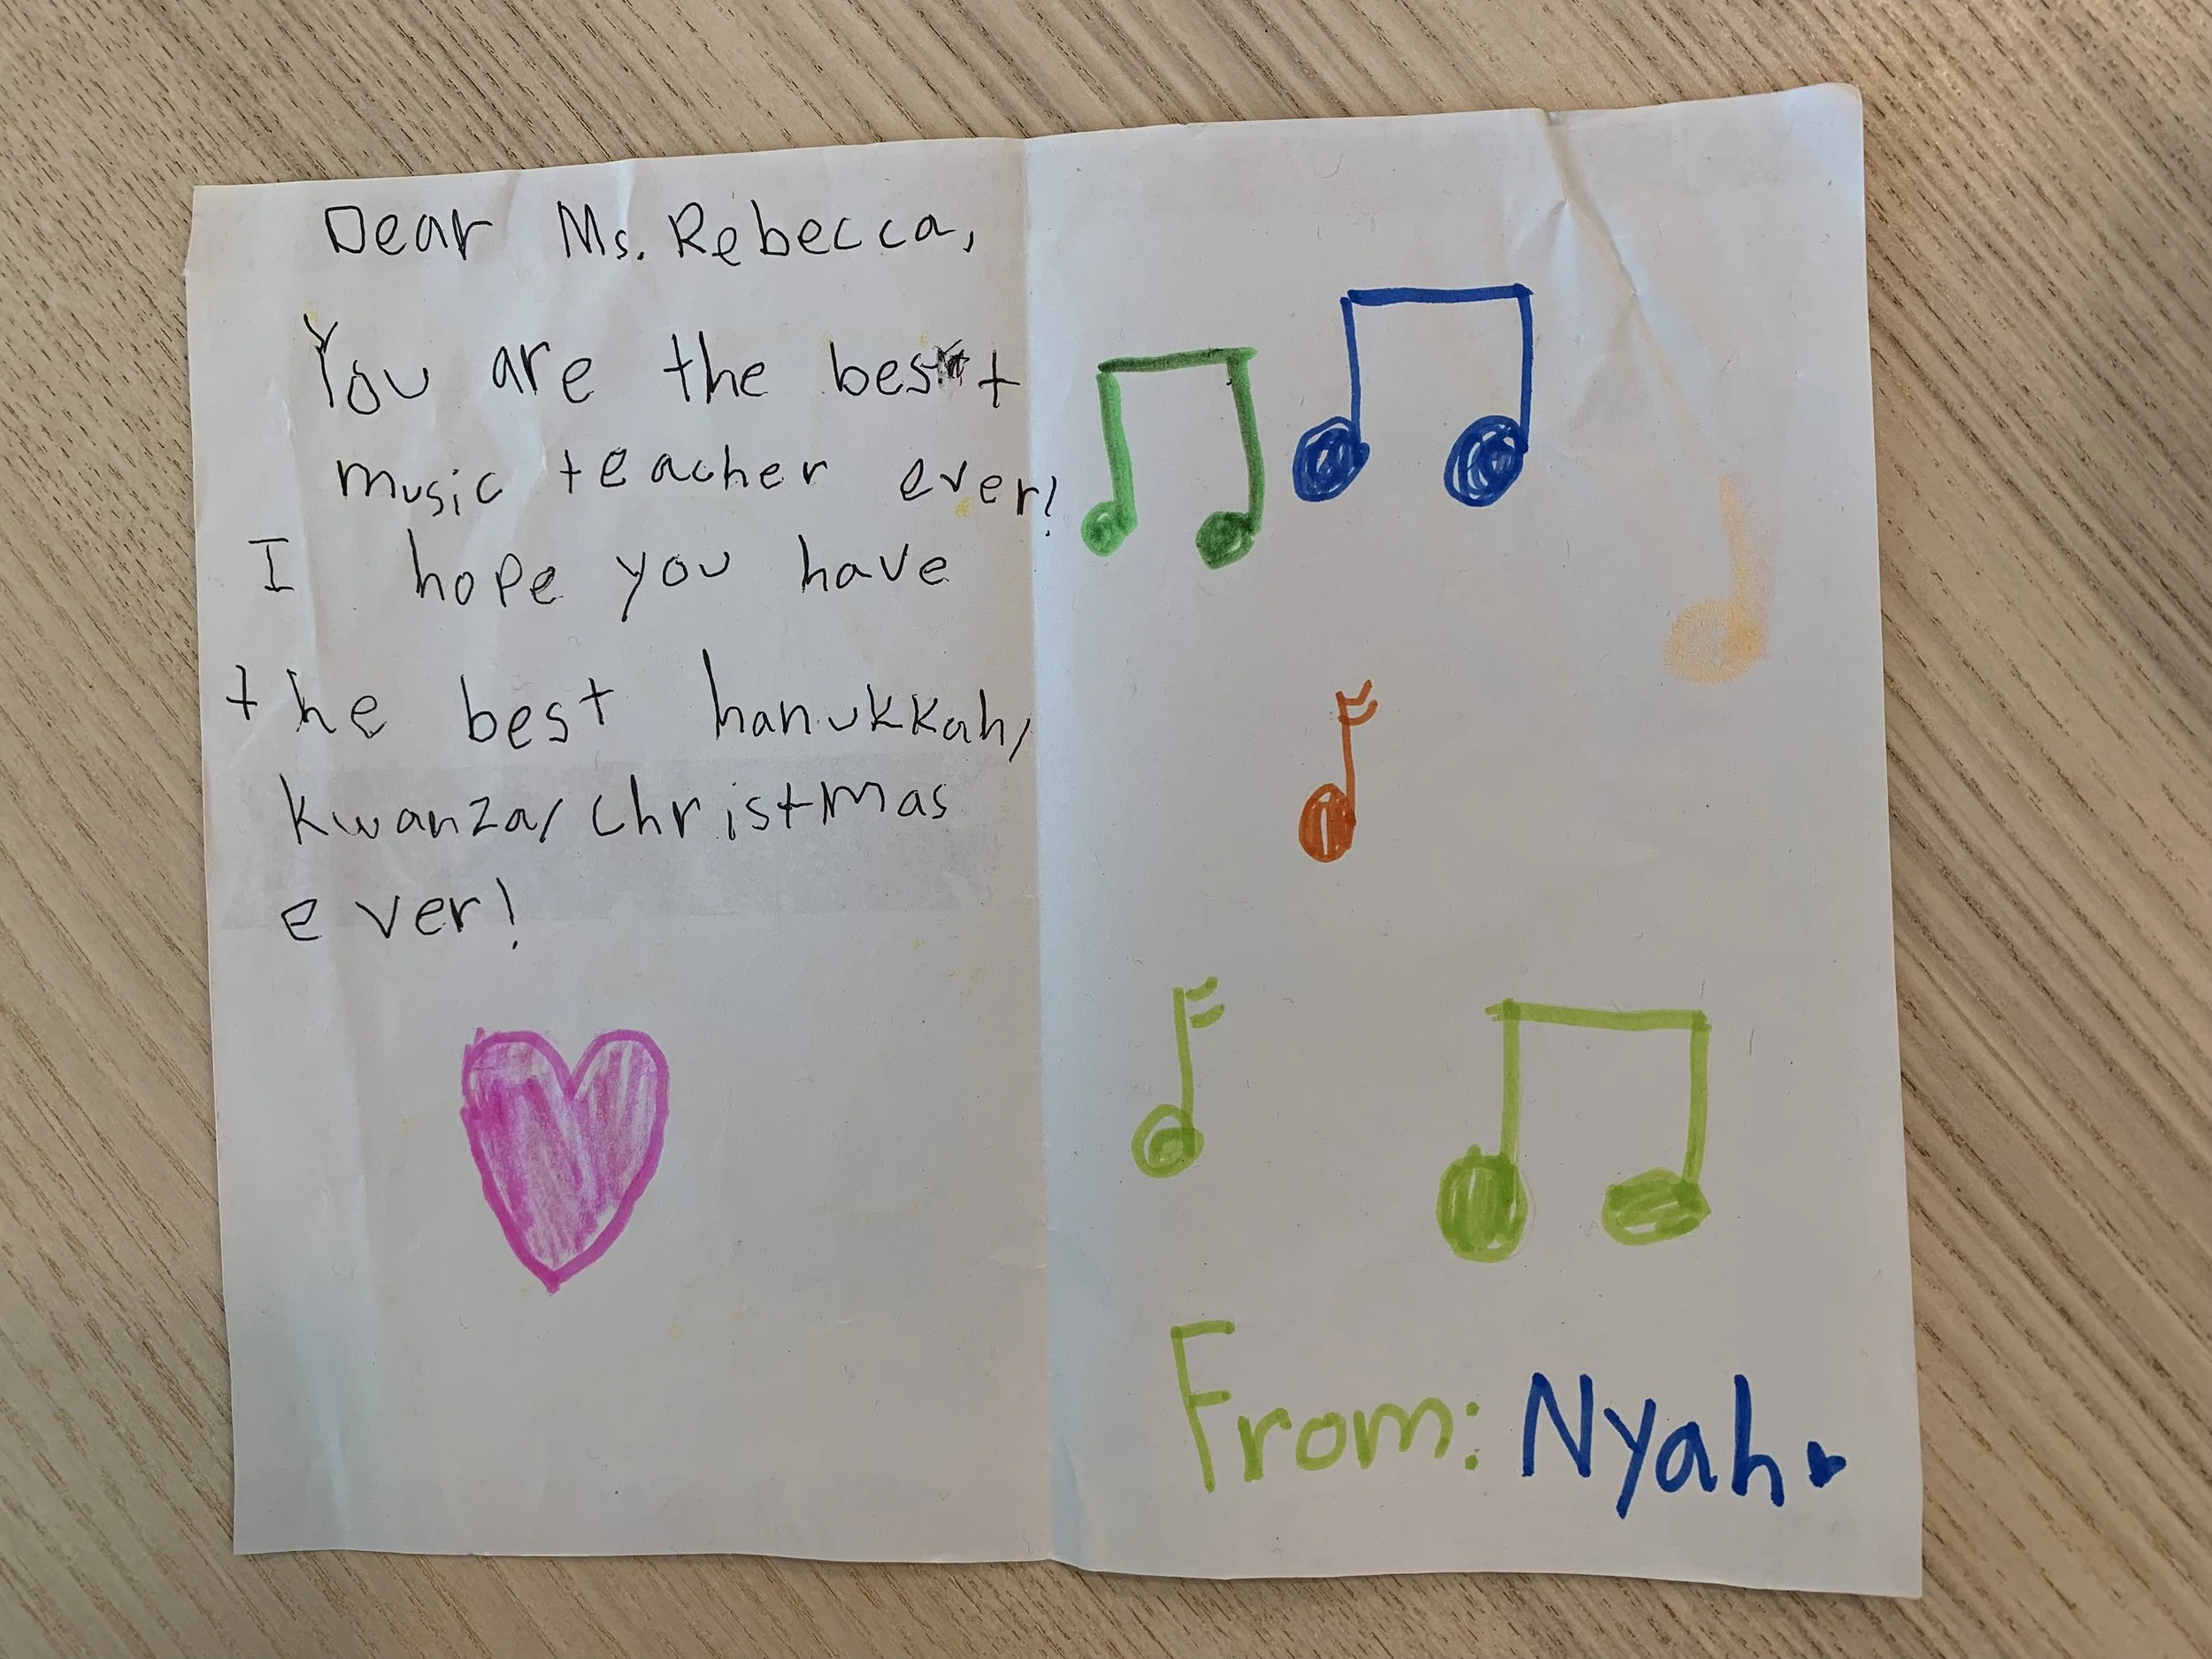 Dear Ms. Rebecca,
You are the best
music teacher ever!
I hope you have
the best hanukkah/
kwanza/christmas
ever!
From: Nyah